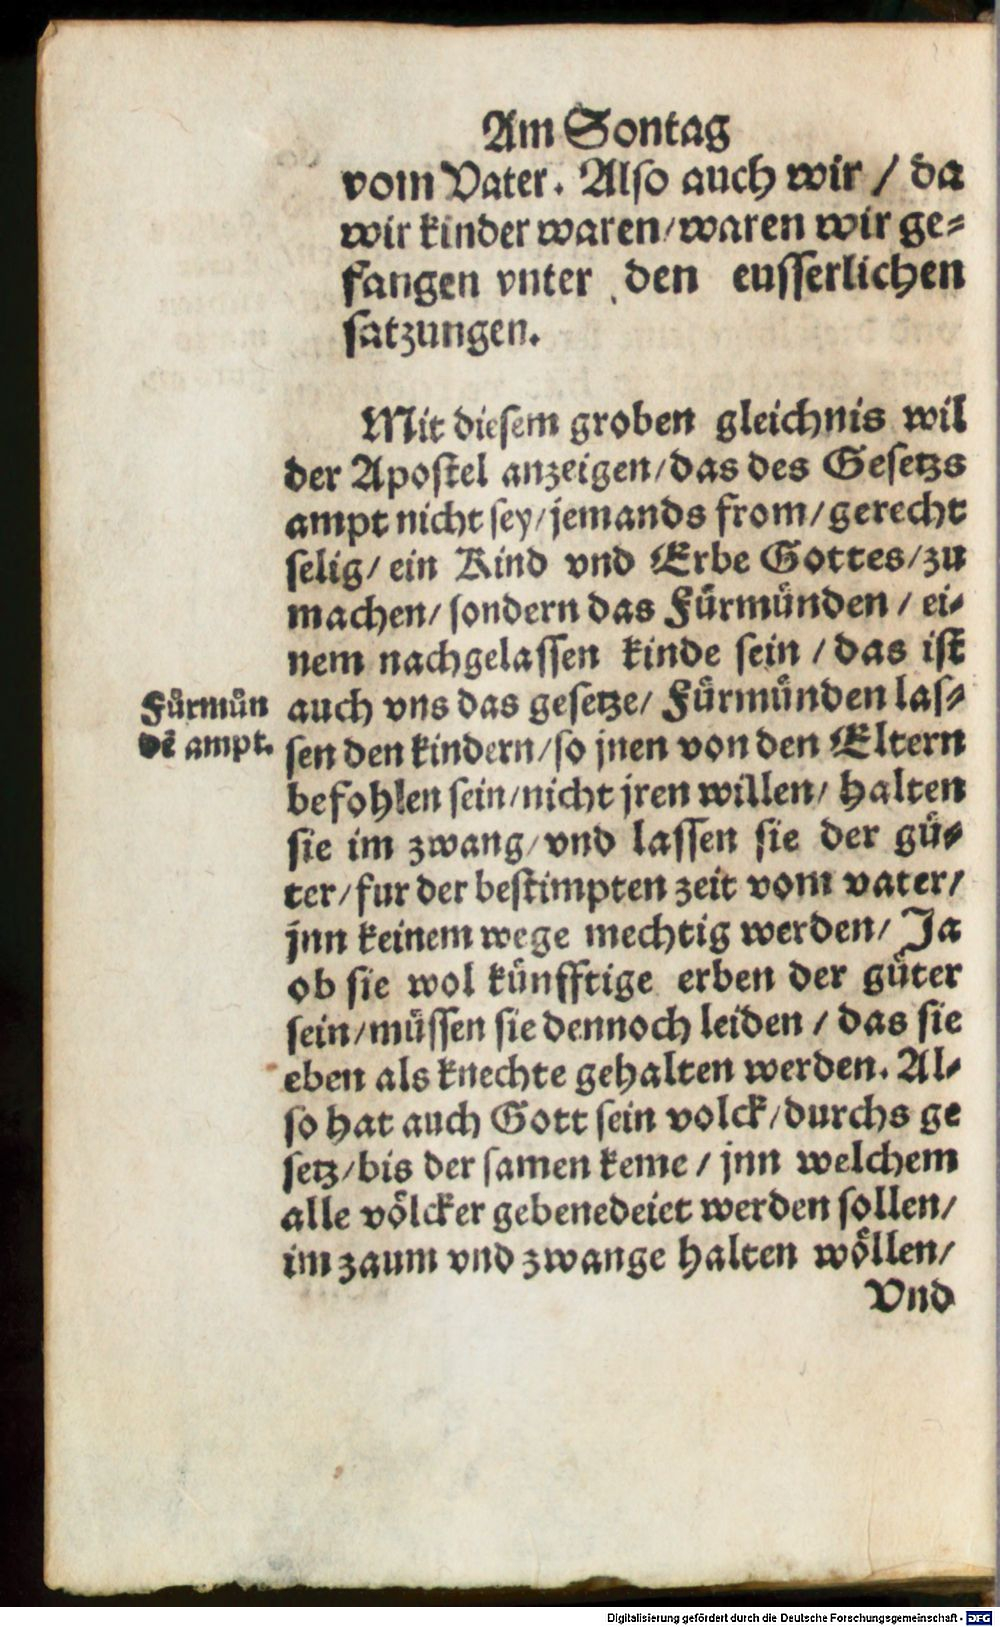 Am Sontag
vom Vater. Also auch wir / da
wir kinder waren/waren wir ge-
fangen vnter den eusserlichen
satzungen.
Mit diesem groben gleichnis wil
der Apostel anzeigen/das des Gesetzs
ampt nicht sey/jemands from/gerecht
selig/ ein Kind vnd Erbe Gottes/zu
machen/ sondern das Fürmünden / ei-
nem nachgelassen kinde sein / das ist
auch vns das gesetze/ Fürmünden las-
Fürmün
dē ampt.
sen den kindern/so jnen von den Eltern
befohlen sein/nicht jren willen/ halten
sie im zwang/vnd lassen sie der gü-
ter/fur der bestimpten zeit vom vater/
jnn keinem wege mechtig werden/ Ja
ob sie wol künfftige erben der güter
sein/müssen sie dennoch leiden / das sie
eben als knechte gehalten werden. Al-
so hat auch Gott sein volck/durchs ge
setz/bis der samen keme / jnn welchem
alle völcker gebenedeiet werden sollen/
im zaum vnd zwange halten wöllen/
Vnd
Digitalisierung gefördert durch die Deutsche Forschungsgemeinschaft - DFG